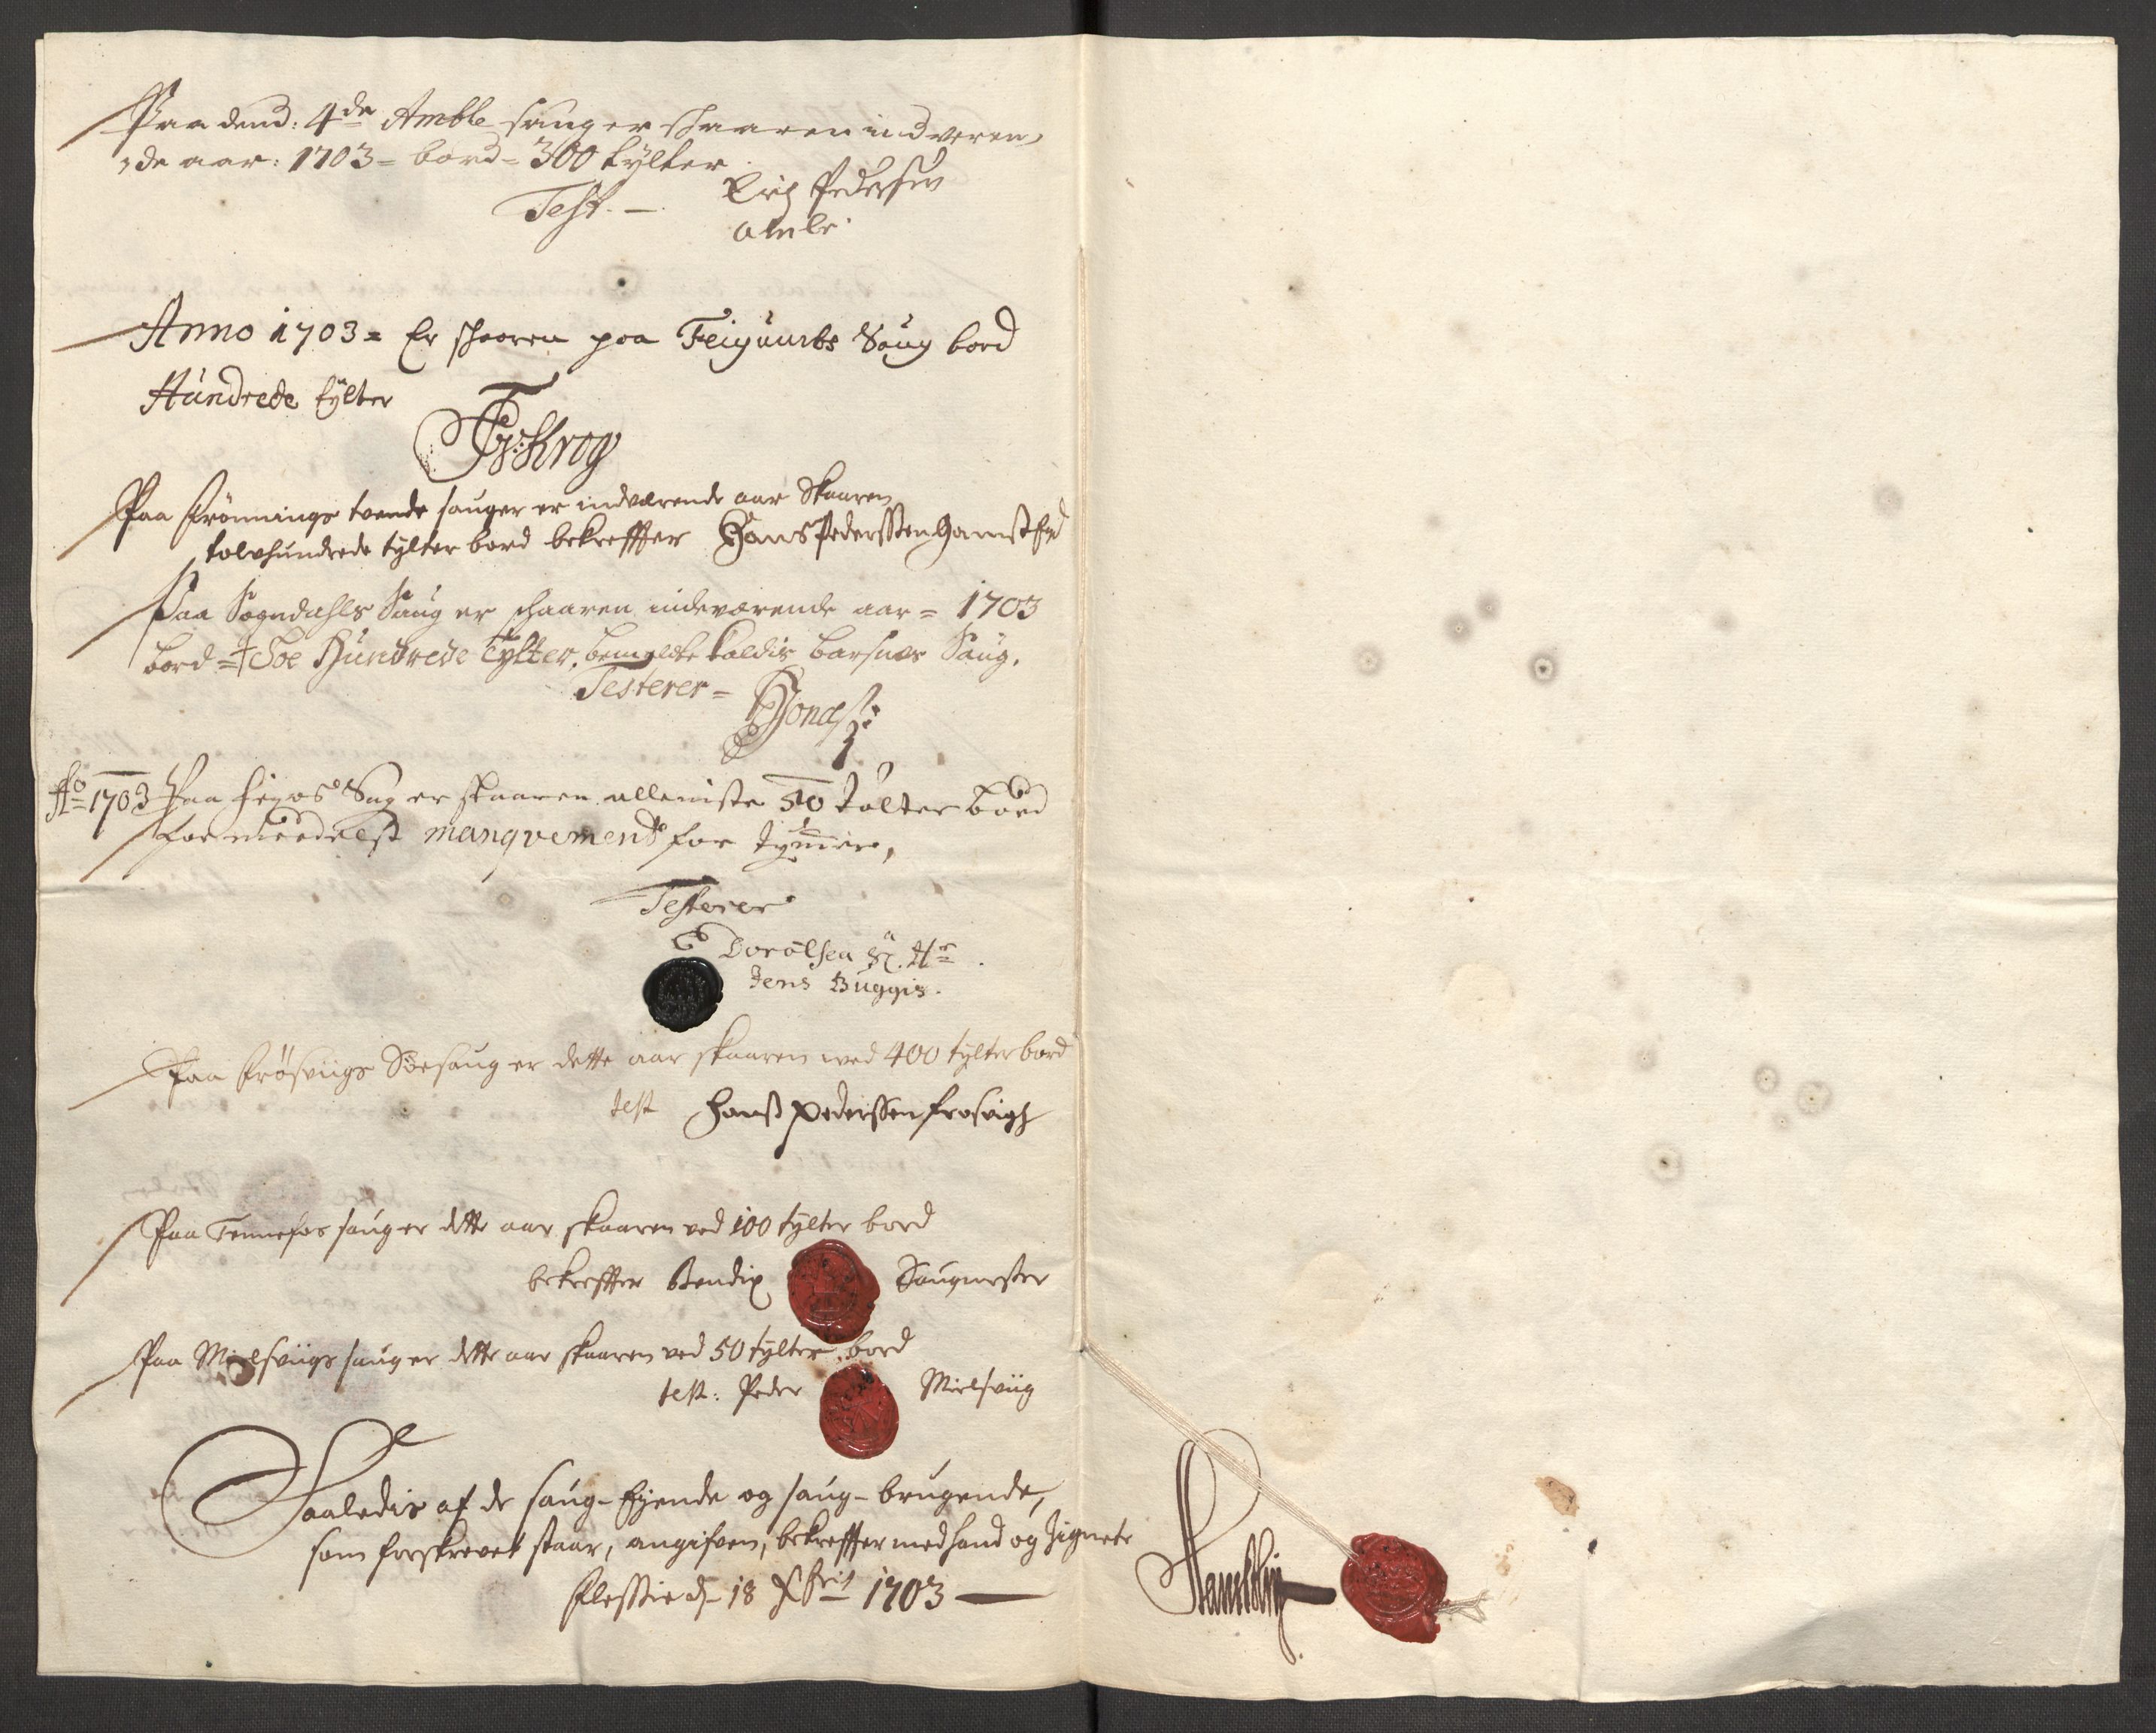 Paa dend: 4de Amble saug er skaaren indveren,
,de aar: 1703 = bord = 300 tylter
Test. — Pedersen
Amble
Anno 1703 = Er skaaren paa Feigumbs Saug bord
Hundrede tylter
Krog
Paa Frønnings tvende sauger er indværende aar Skaaren
tolvhundrede tylter bord bekreffter Hans Pederssen
Paa Sogndahls Saug er skaaren indeværende aar = 1703
bord = Toe Hundrede Tylter, bemelte kaldis Barsnes Saug.
Testerer =
Ao 1703 Paa Sag er skaaren alleniste 50 tolter bord
formeedelst manqvement for tymmer,
Testerer
Jens Buggis.
Paa Frøsviigs Søesaug er dette aar skaaren ved 400 tylter bord
test Hans Pederssen Frosvigh
Paa Tennefos saug er dette aar skaaren ved 100 tylter bord
bekreffter Bendix Saugmester
Paa Mielsviigs saug er dette aar skaaren ved 50 tylter bord
test: Peder Mielsviig
Saaledis af de saug-Eyende og saug-brugende,
som forskrevet staar, angifven, bekreffter med haand og Zignete
d. 18 Xbris 1703 —